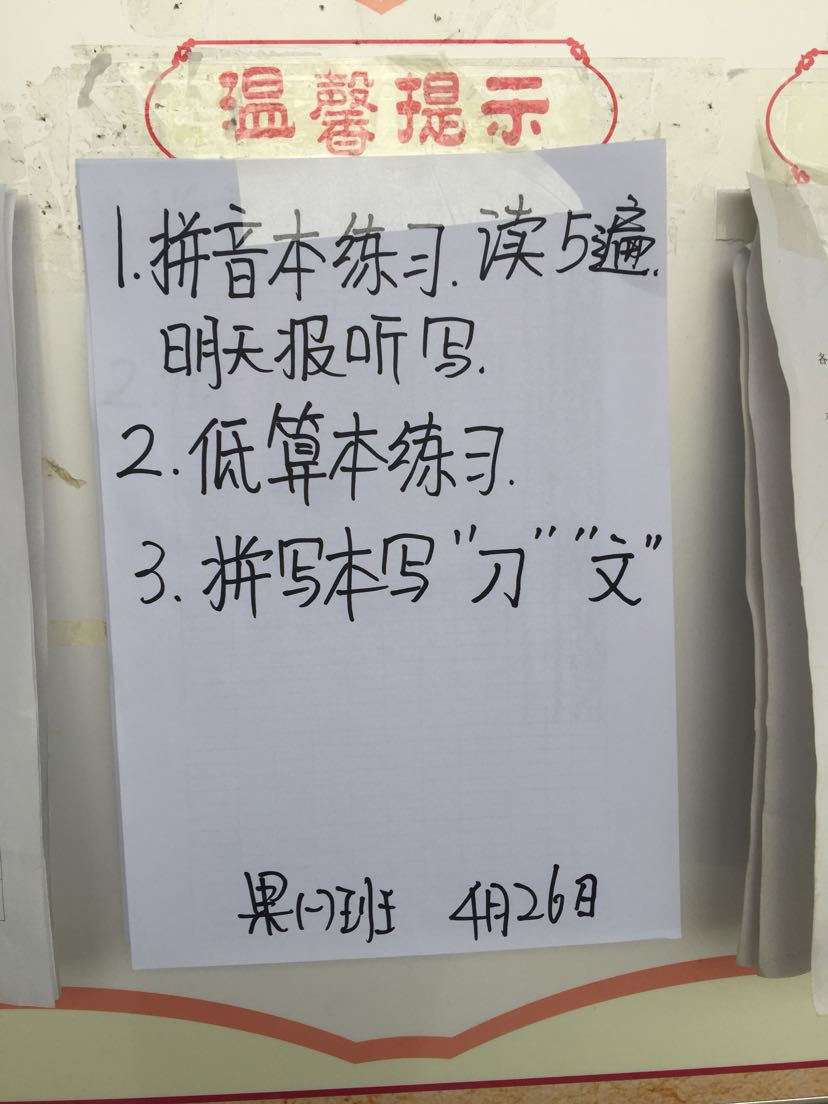 温馨提示
1.拼音本练习.读5遍.
明天报听写.
2.低算本练习.
3.拼写本写"刀""文"
果(一)班 4月26日